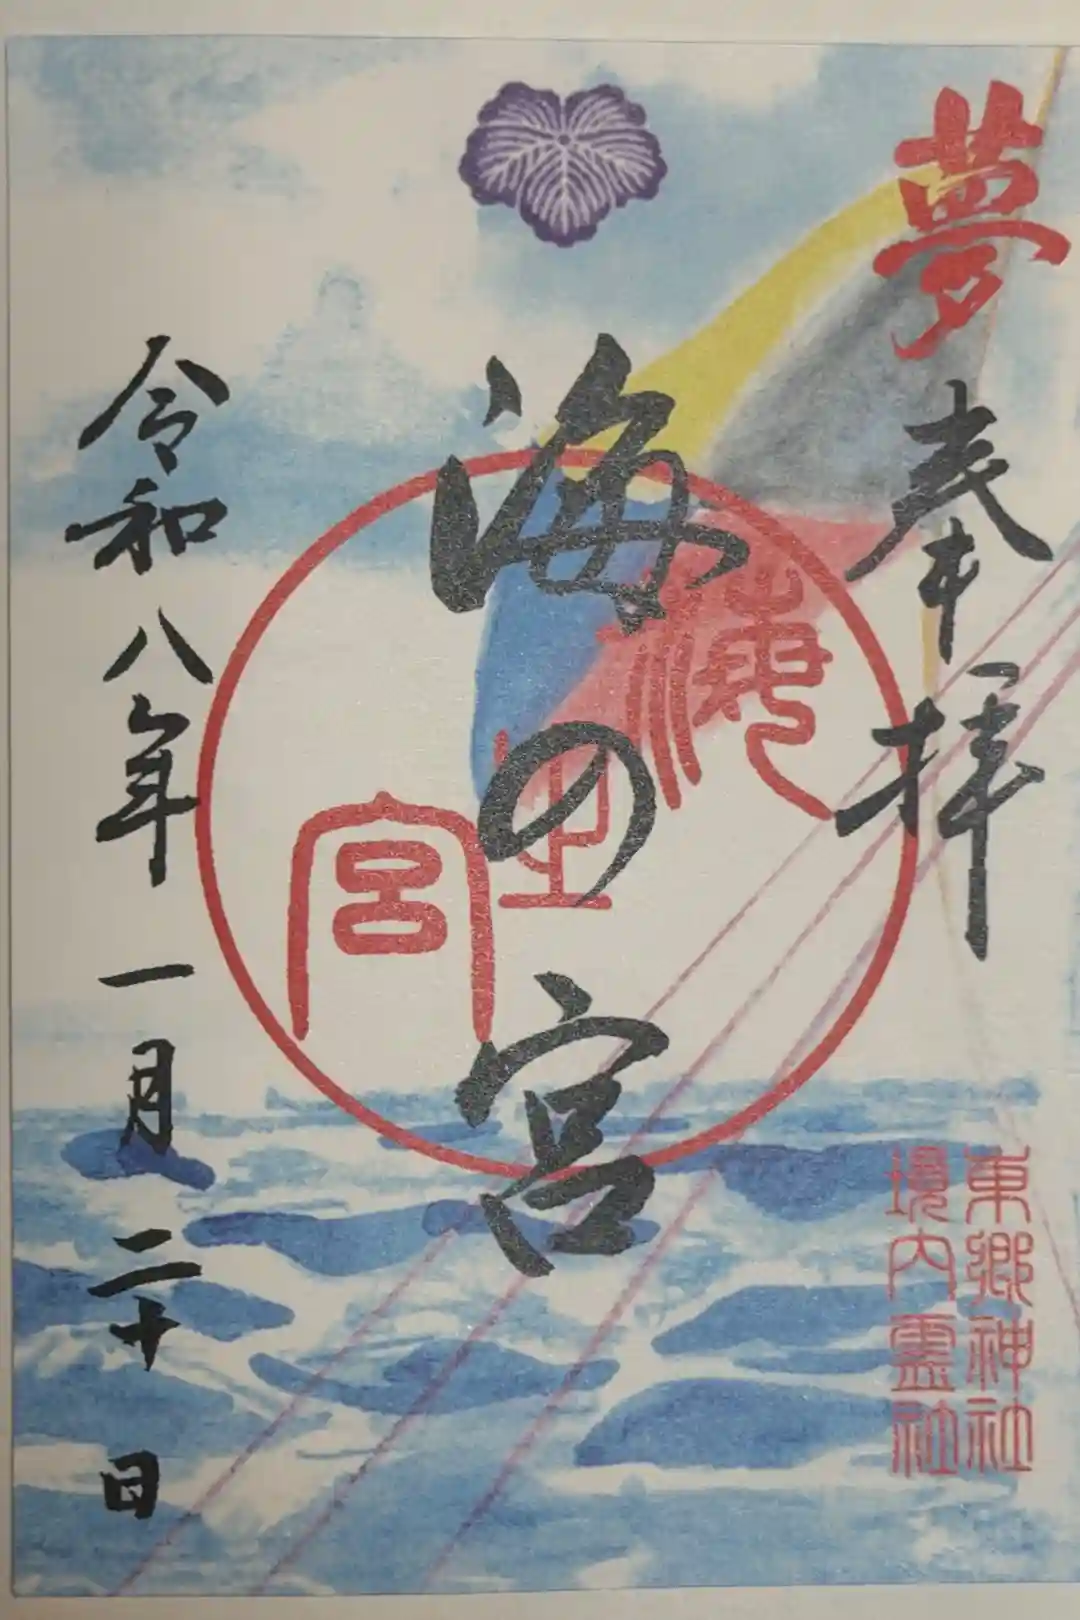 夢
奉拝
海の宮
海之宮
令和八年一月二十日
東郷神社
境内霊社